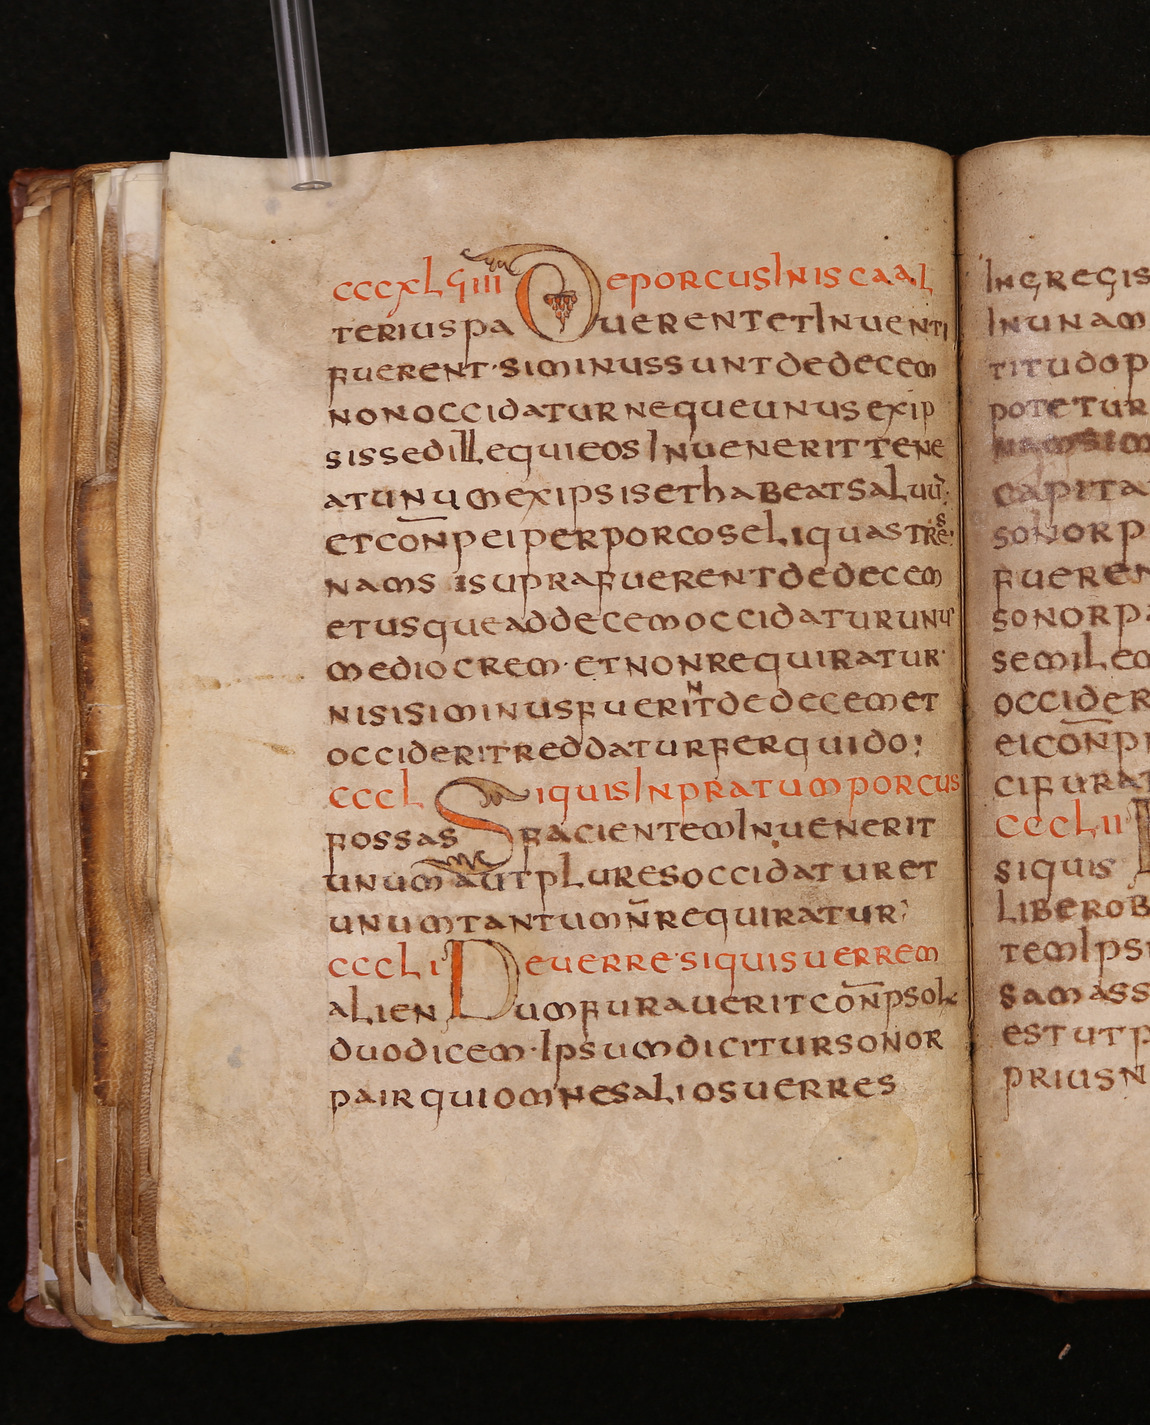 CCCXLVIIII DEPORCUSINISCAAL
TERIUSPA UERENTETINUENTI
FUERENT·SIMINUSSUNTDEDECEM
NONOCCIDATURNEQUEUNUSEXIP
SISSEDILLEQUIEOSINUENERITTENE
ATUNUMEXIPSISETHABEATSALUŪ;
ETCON̄PEIPERPORCOSELIQUASTRES;
NAMS ISUPRAFUERENTDEDECEM
ETUSQUEADDECEMOCCIDATURUNUS
MEDIOCREM·ETNONREQUIRATUR·
NISISIMINUSFUERINTDEDECEMET
OCCIDERITREDDATURFERQUIDO;
CCCL SIQUISINPRATUMPORCUS
FOSSAS FACIENTEMINUENERIT
UNUMAUTPLURESOCCIDATURET
UNUMTANTUMN̄REQUIRATUR;
CCCLI DEUERRE·SIQUISUERREM
ALIEN UMFURAUERITCON̄PSOL
DUODICEM·IPSUMDICITURSONOR
PAIRQUIOMNESALIOSUERRES
INGREGIS
INUNAM
TITUDOP
POTETUR
NAMSIM
CAPITA
SONORP
FUEREN
SONORPA
SEMILEM
OCCIDER
EICON̄P
CIFURAT
CCCLII
SIQUIS
LIBEROB
TEMIPSI
SAMASS
ESTUTP
PRIUSN